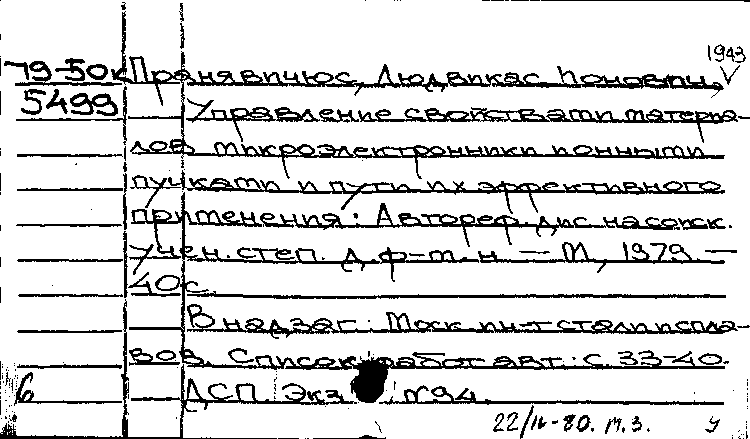 1943
79-50к Пранявичюс, Людвикас Ионович,
5499 Управление свойствами материа-
лов микроэлектронники ионными
пучками и пути их эффективного
применения: Автореф. дис. на соиск.
учен. степ. д. ф-м. н. — М, 1979 —
40с.
В надзаг: Моск ин-т стали и спла-
вов. Список работ авт.: с. 33-40.
6 ДСП. Экз №94.
22/IV-80. М.З. У